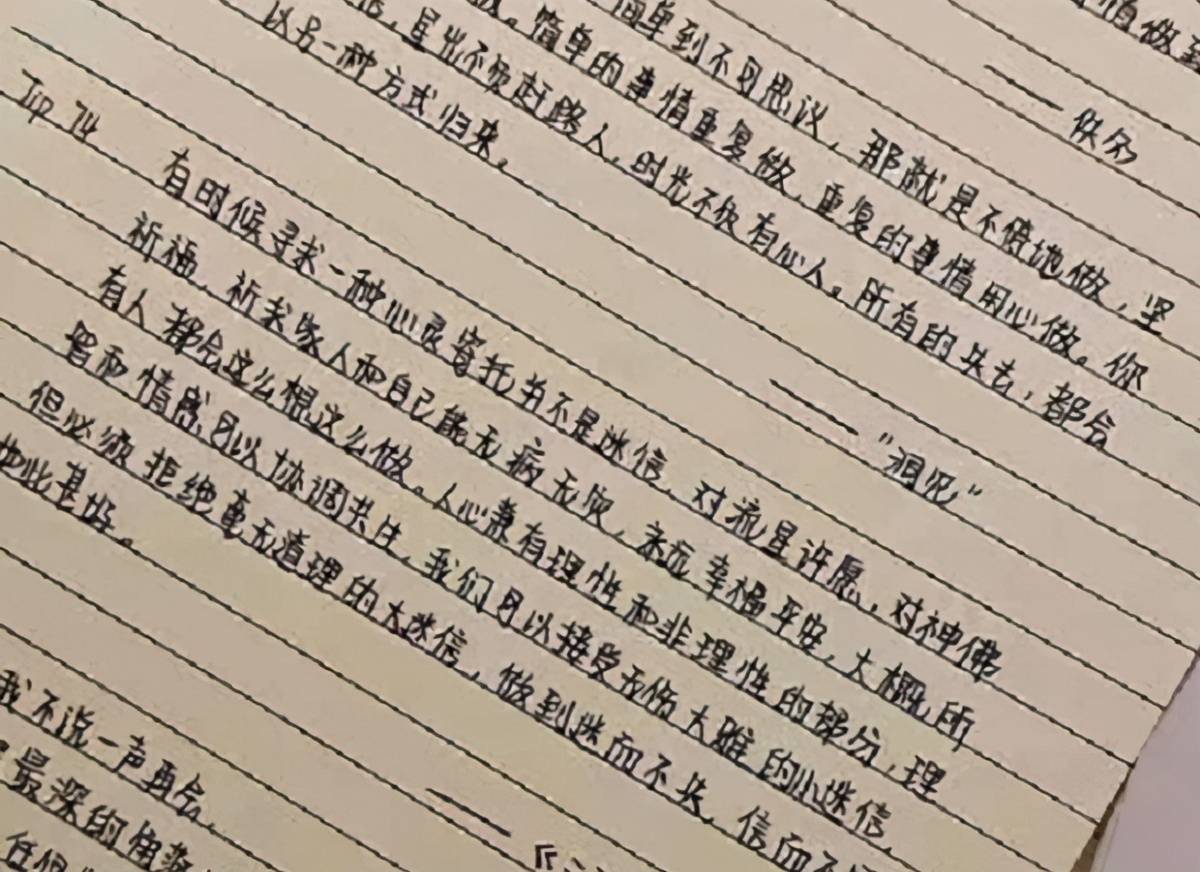 怕做
——佚名
简单到不可思议，那就是不停地做，坚
简单的事情重复做，重复的事情用心做。你
星光不负赶路人，时光不负有心人。所有的失去，都会
以另一种方式归来。
——"洞见"
有时候寻求一种心灵寄托并不是迷信，对流星许愿，对神佛
祈福，祈求家人和自己能无病无灾，永远幸福平安，大概所
有人都会这么想这么做。人心兼有理性和非理性的部分，理
智和情感可以协调共生，我们可以接受无伤大雅的小迷信，
但必须拒绝毫无道理的大迷信，做到迷而不失，信而不
此甚好。
我不说一声再会。
最深的